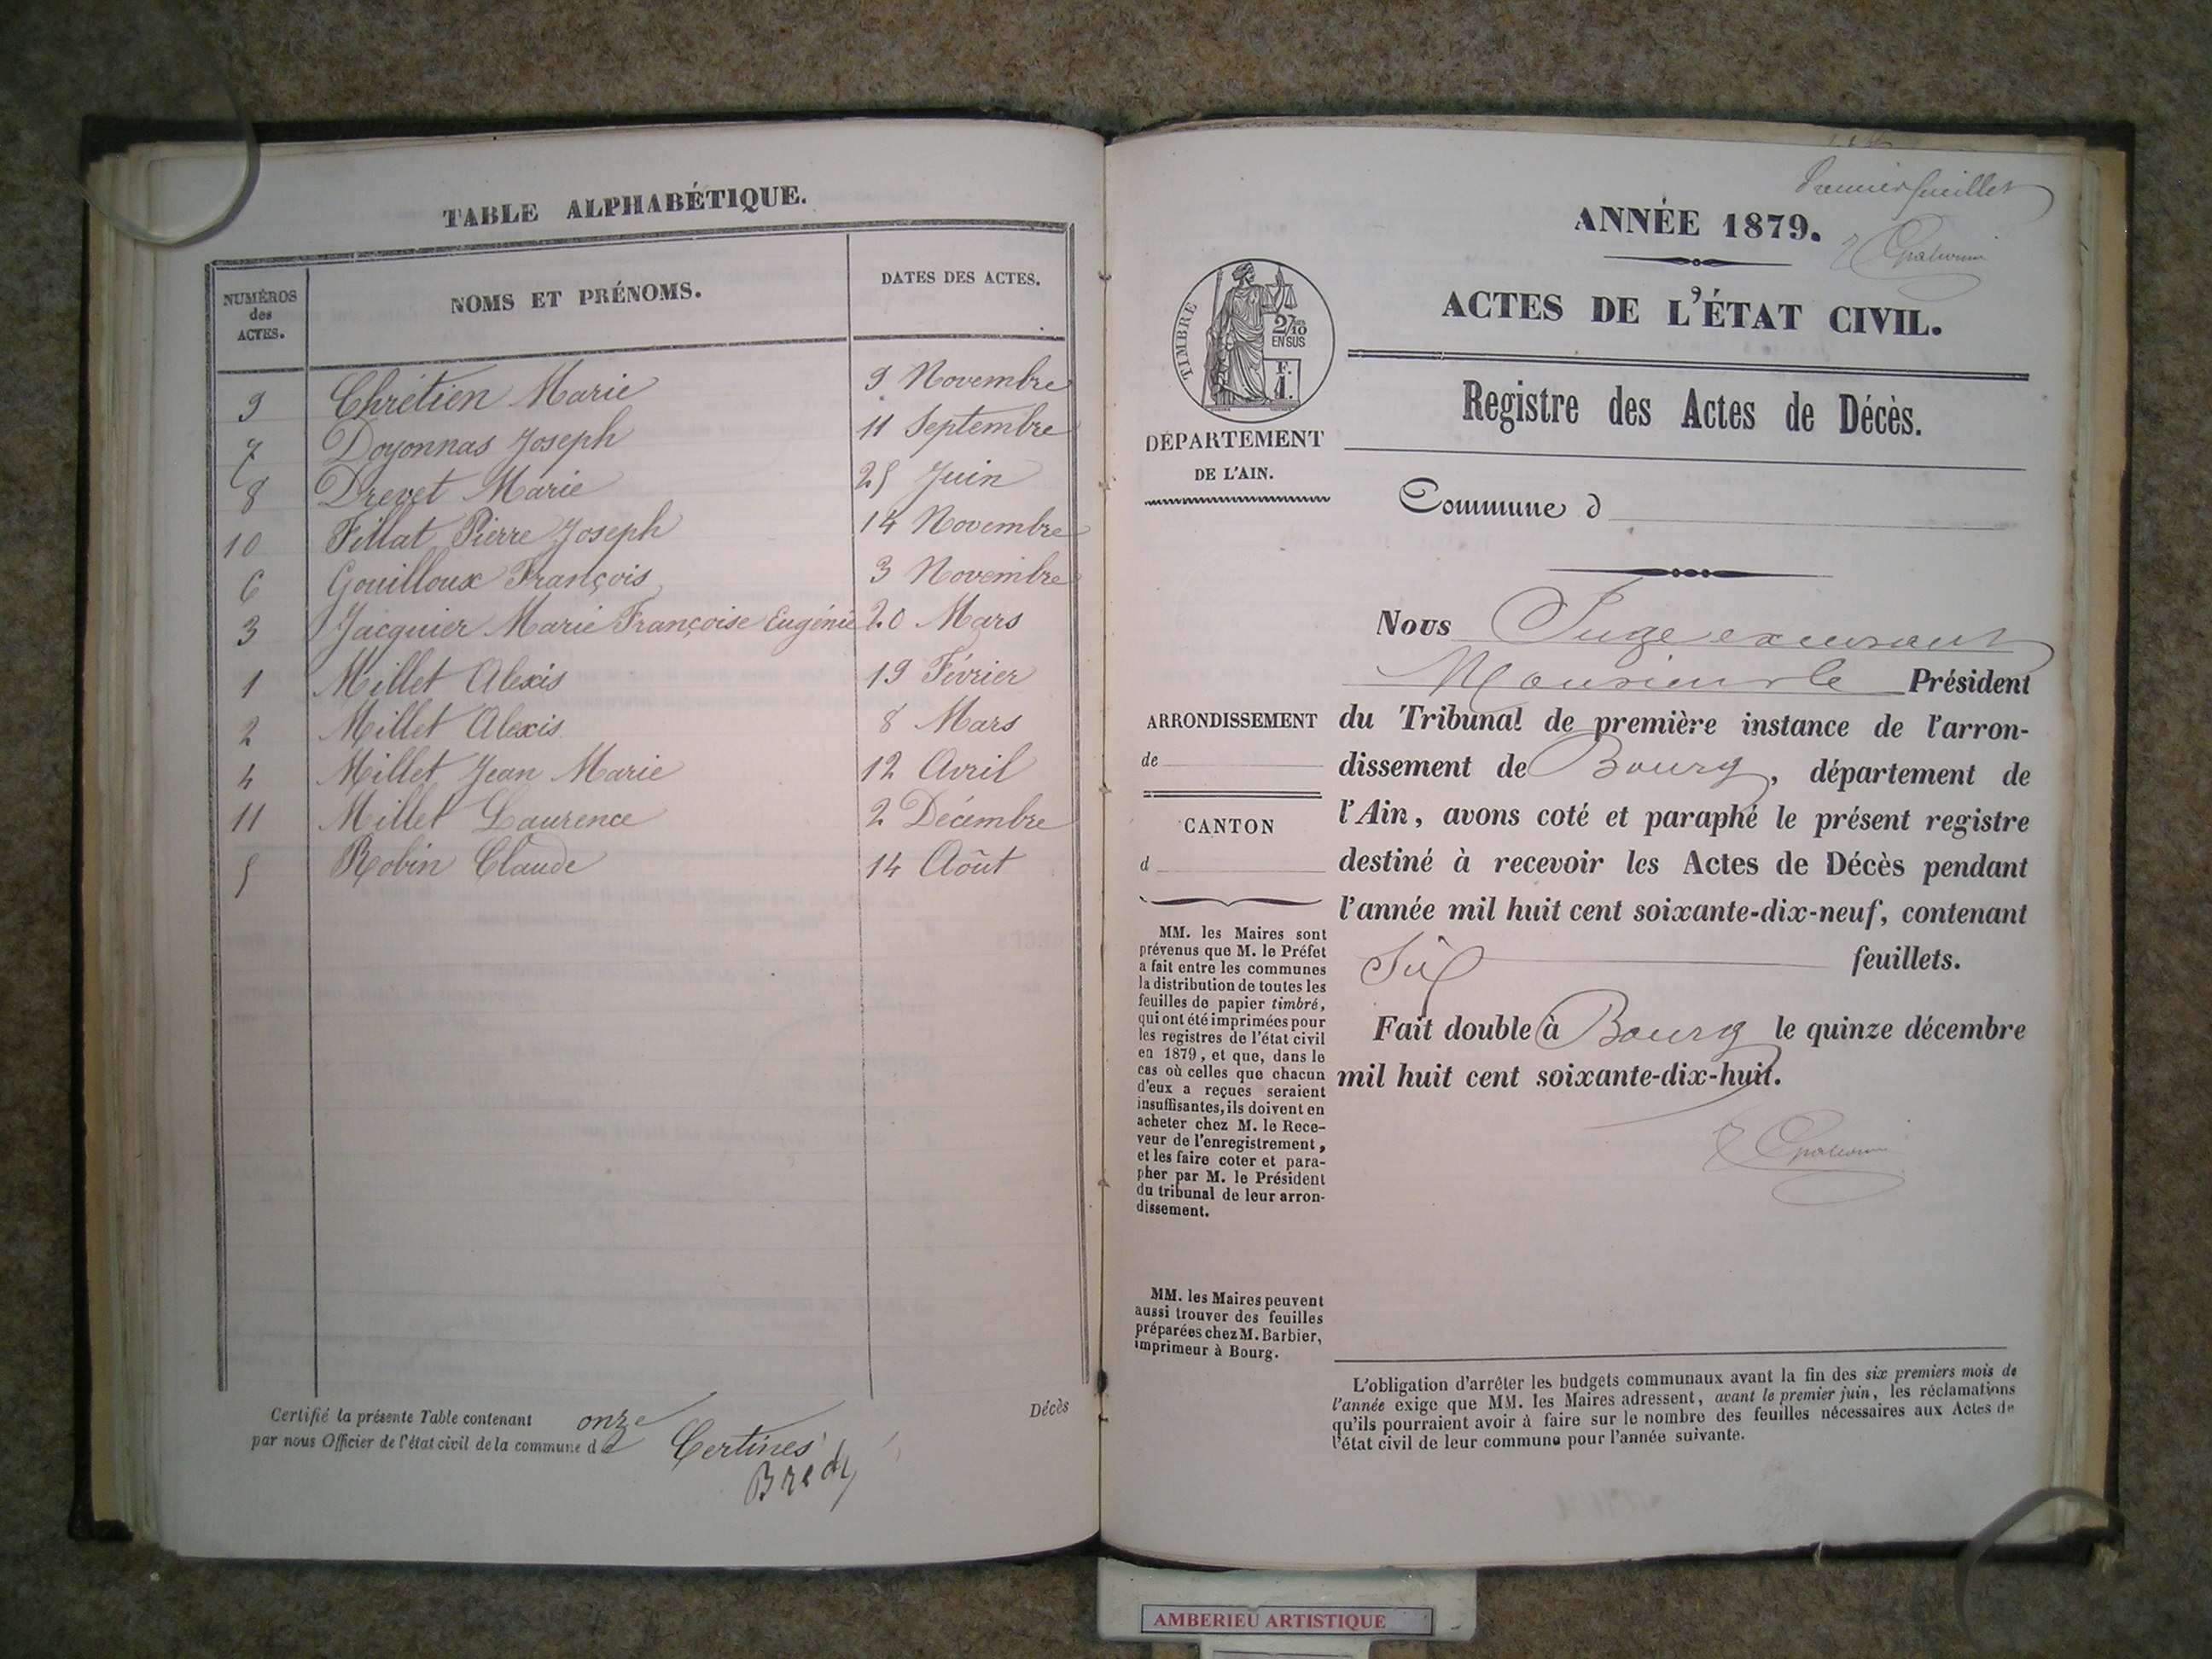 TABLE ALPHABÉTIQUE.
NUMÉROS des ACTES. NOMS ET PRÉNOMS. DATES DES ACTES.
9 Chrétien Marie 9 Novembre
7 Doyonnas Joseph 11 Septembre
8 Drevet Marie 25 Juin
10 Fillat Pierre Joseph 14 Novembre
6 Gouilloux François 3 Novembre
3 Jacquier Marie Françoise Eugénie 20 Mars
1 Millet Alexis 19 Février
2 Millet Alexis 8 Mars
4 Millet Jean Marie 12 Avril
11 Millet Laurence 2 Décembre
5 Robin Claude 14 Août
Certifié la présente Table contenant onze
par nous Officier de l'état civil de la commune de Certines
Décès
Premier feuillet
ANNÉE 1879.
ACTES DE L'ÉTAT CIVIL.
TIMBRE
2/10 EN SUS
F. 1.
Registre des Actes de Décès.
DÉPARTEMENT
DE L'AIN.
Commune d
Nous Juge
Monsieur le Président
du Tribunal de première instance de l'arron-
dissement de Bourg, département de
l'Ain, avons coté et paraphé le présent registre
destiné à recevoir les Actes de Décès pendant
l'année mil huit cent soixante-dix-neuf, contenant
Six feuillets.
Fait double à Bourg le quinze décembre
mil huit cent soixante-dix-huit.
ARRONDISSEMENT
de
CANTON
d
MM. les Maires sont
prévenus que M. le Préfet
a fait entre les communes
la distribution de toutes les
feuilles de papier timbré,
qui ont été imprimées pour
les registres de l'état civil
en 1879, et que, dans le
cas où celles que chacun
d'eux a reçues seraient
insuffisantes, ils doivent en
acheter chez M. le Rece-
veur de l'enregistrement,
et les faire coter et para-
pher par M. le Président
du tribunal de leur arron-
dissement.
MM. les Maires peuvent
aussi trouver des feuilles
préparées chez M. Barbier,
imprimeur à Bourg.
L'obligation d'arrêter les budgets communaux avant la fin des six premiers mois de
l'année exige que MM. les Maires adressent, avant le premier juin, les réclamations
qu'ils pourraient avoir à faire sur le nombre des feuilles nécessaires aux Actes de
l'état civil de leur commune pour l'année suivante.
AMBERIEU ARTISTIQUE